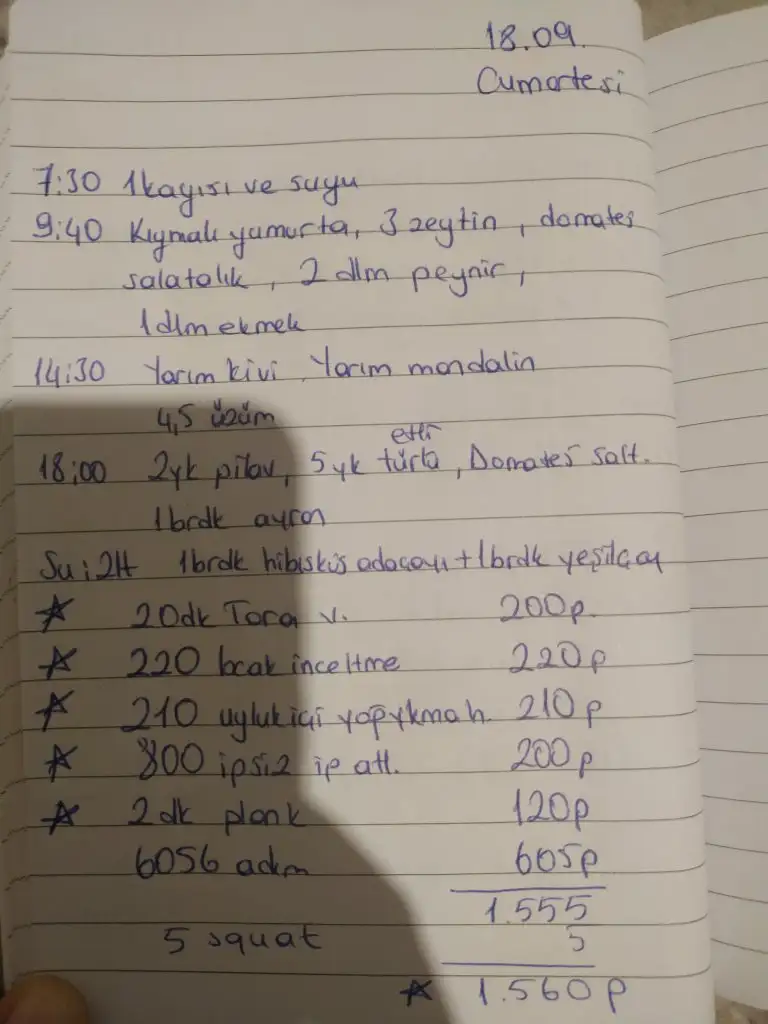 18.09.
Cumartesi
7:30 1 kayısı ve suyu
9:40 Kıymalı yumurta, 3 zeytin, domates
salatalık, 2 dlm peynir,
1 dlm ekmek
14:30 Yarım kivi, Yarım mandalin
4,5 üzüm
etli
18:00 2yk pilav, 5 yk türlü, Domates salt.
1 brdk ayran
Su: 2lt 1brdk hibisküs adaçayı + 1brdk yeşilçay
20dk Tora v. 200p.
220 bcak inceltme 220p
210 uyluk içi 210p
800 ipsiz ip atl. 200p
2 dk plank 120p
6056 adım 605p
1.555
5 squat 5
1.560p